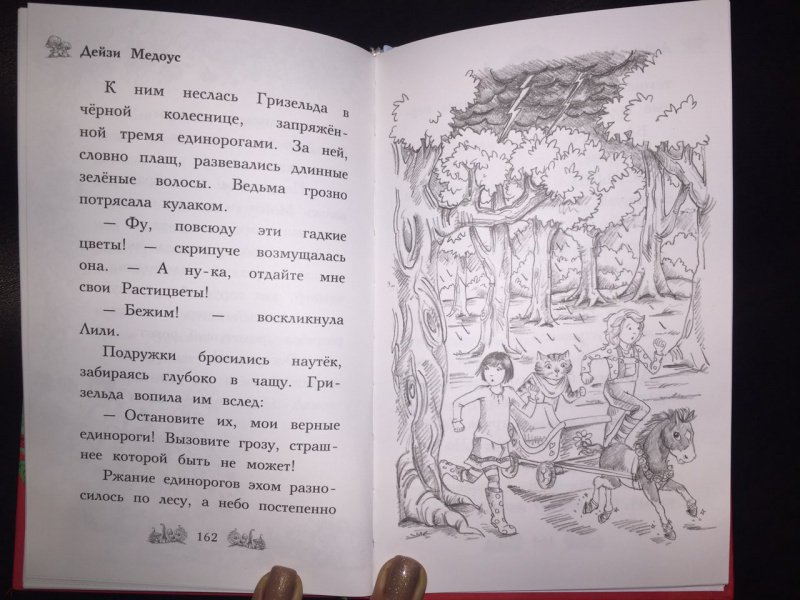 Дейзи Медоус
К ним неслась Гризельда в
чёрной колеснице, запряжён-
ной тремя единорогами. За ней,
словно плащ, развевались длинные
зелёные волосы. Ведьма грозно
потрясала кулаком.
— Фу, повсюду эти гадкие
цветы! — скрипуче возмущалась
она. — А ну-ка, отдайте мне
свои Растицветы!
— Бежим! — воскликнула
Лили.
Подружки бросились наутёк,
забираясь глубоко в чащу. Гри-
зельда вопила им вслед:
— Остановите их, мои верные
единороги! Вызовите грозу, страш-
нее которой быть не может!
Ржание единорогов эхом разно-
силось по лесу, а небо постепенно
162